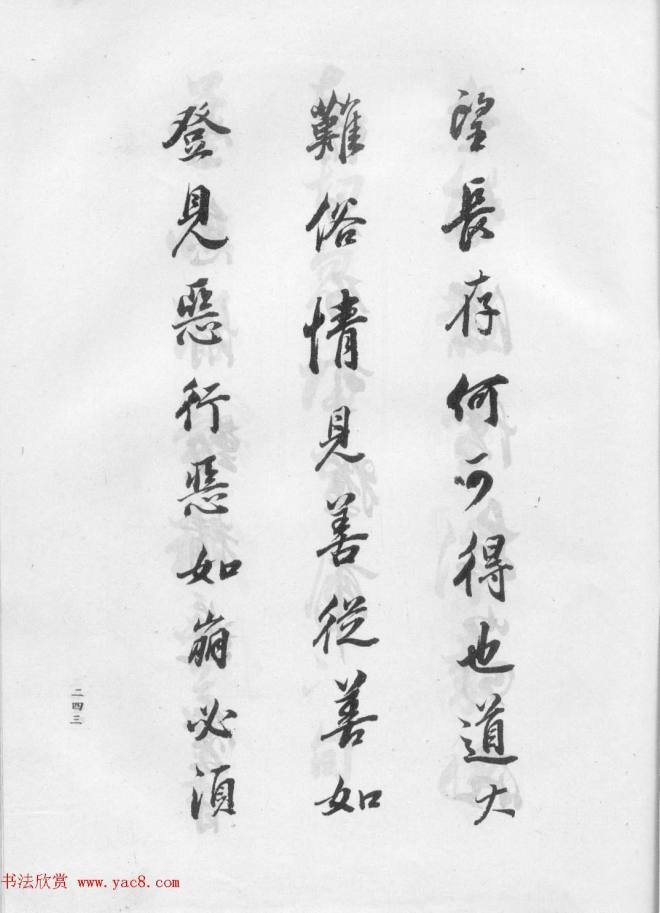 望長存何可得也道大
難俗情見善從善如
登見惡行惡如崩必須
二四三
书法欣赏 www.yac8.com